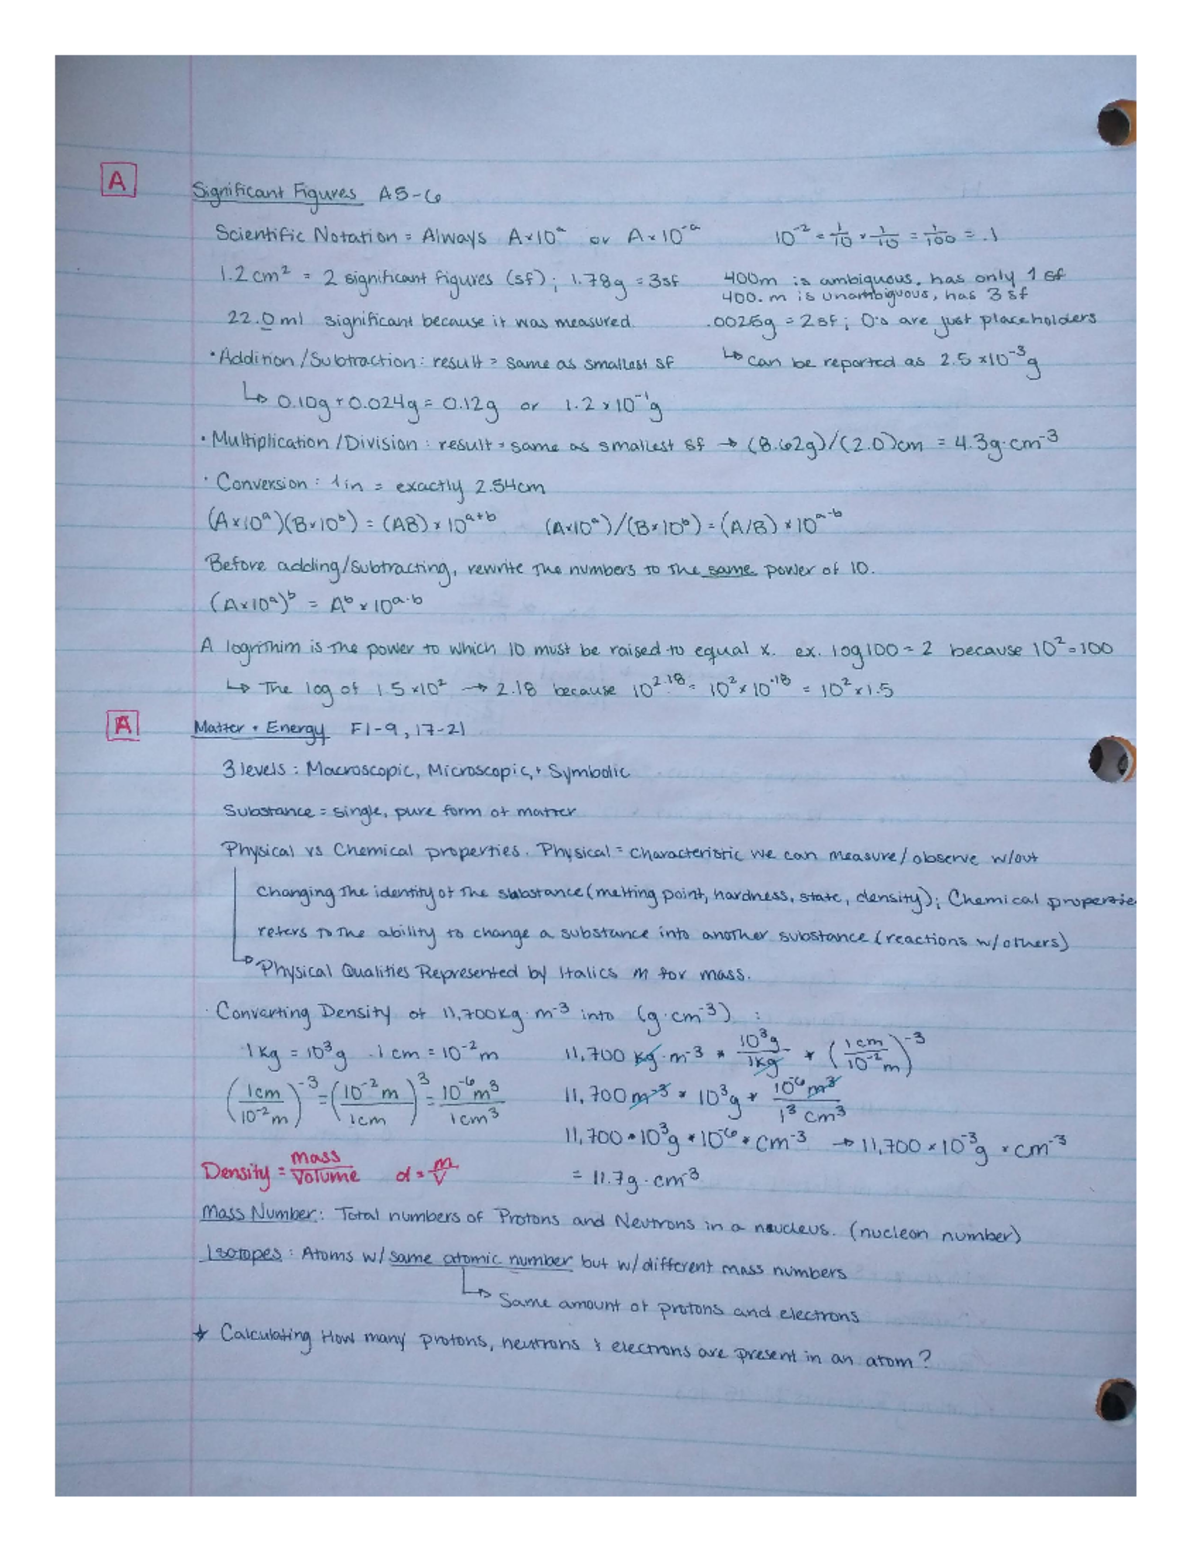 A
Significant Figures A5-6
Scientific Notation = Always A×10ᵃ or A×10⁻ᵃ 10⁻² = 1/10 × 1/10 = 1/100 = .1
1.2 cm² = 2 significant figures (sf); 1.78g = 3sf 400m is ambiguous, has only 1 sf
400. m is unambiguous, has 3 sf
22.0 ml significant because it was measured. .0025g = 2sf; 0's are just placeholders
• Addition/Subtraction: result = same as smallest sf ↳ can be reported as 2.5 ×10⁻³g
↳ 0.10g + 0.024g = 0.12g or 1.2 × 10⁻¹g
• Multiplication/Division: result = same as smallest sf → (8.62g)/(2.0)cm = 4.3g·cm⁻³
• Conversion: 1in = exactly 2.54cm
(A×10ᵃ)(B×10ᵇ) = (AB) × 10ᵃ⁺ᵇ (A×10ᵃ)/(B×10ᵇ) = (A/B) × 10ᵃ⁻ᵇ
Before adding/subtracting, rewrite the numbers to the same power of 10.
(A×10ᵃ)ᵇ = Aᵇ × 10ᵃ·ᵇ
A logrithim is the power to which 10 must be raised to equal x. ex. log100 = 2 because 10² = 100
↳ The log of 1.5 ×10² → 2.18 because 10²·¹⁸ = 10² × 10·¹⁸ = 10² × 1.5
A
Matter + Energy F1-9, 17-21
3 levels: Macroscopic, Microscopic, + Symbolic
Substance = single, pure form of matter
Physical vs Chemical properties. Physical = characteristic we can measure/observe w/out
changing the identity of the substance (melting point, hardness, state, density); Chemical propertie
refers to the ability to change a substance into another substance (reactions w/others)
↳ Physical Qualities Represented by Italics m for mass.
· Converting Density of 11,700kg·m⁻³ into (g·cm⁻³) :
1kg = 10³g · 1cm = 10⁻²m 11,700 kg·m⁻³ * 10³g/1kg * (1cm/10⁻²m)⁻³
(1cm/10⁻²m)⁻³ = (10⁻²m/1cm)³ = 10⁻⁶m³/1cm³ 11,700 m⁻³ * 10³g * 10⁻⁶m³/1³cm³
11,700 * 10³g * 10⁻⁶ * cm⁻³ → 11,700 × 10⁻³g × cm⁻³
Density = mass/volume d = m/V = 11.7g·cm⁻³
Mass Number: Total numbers of Protons and Neutrons in a nucleus. (nucleon number)
Isotopes: Atoms w/ same atomic number but w/different mass numbers
↳ Same amount of protons and electrons
★ Calculating How many protons, neutrons & electrons are present in an atom?